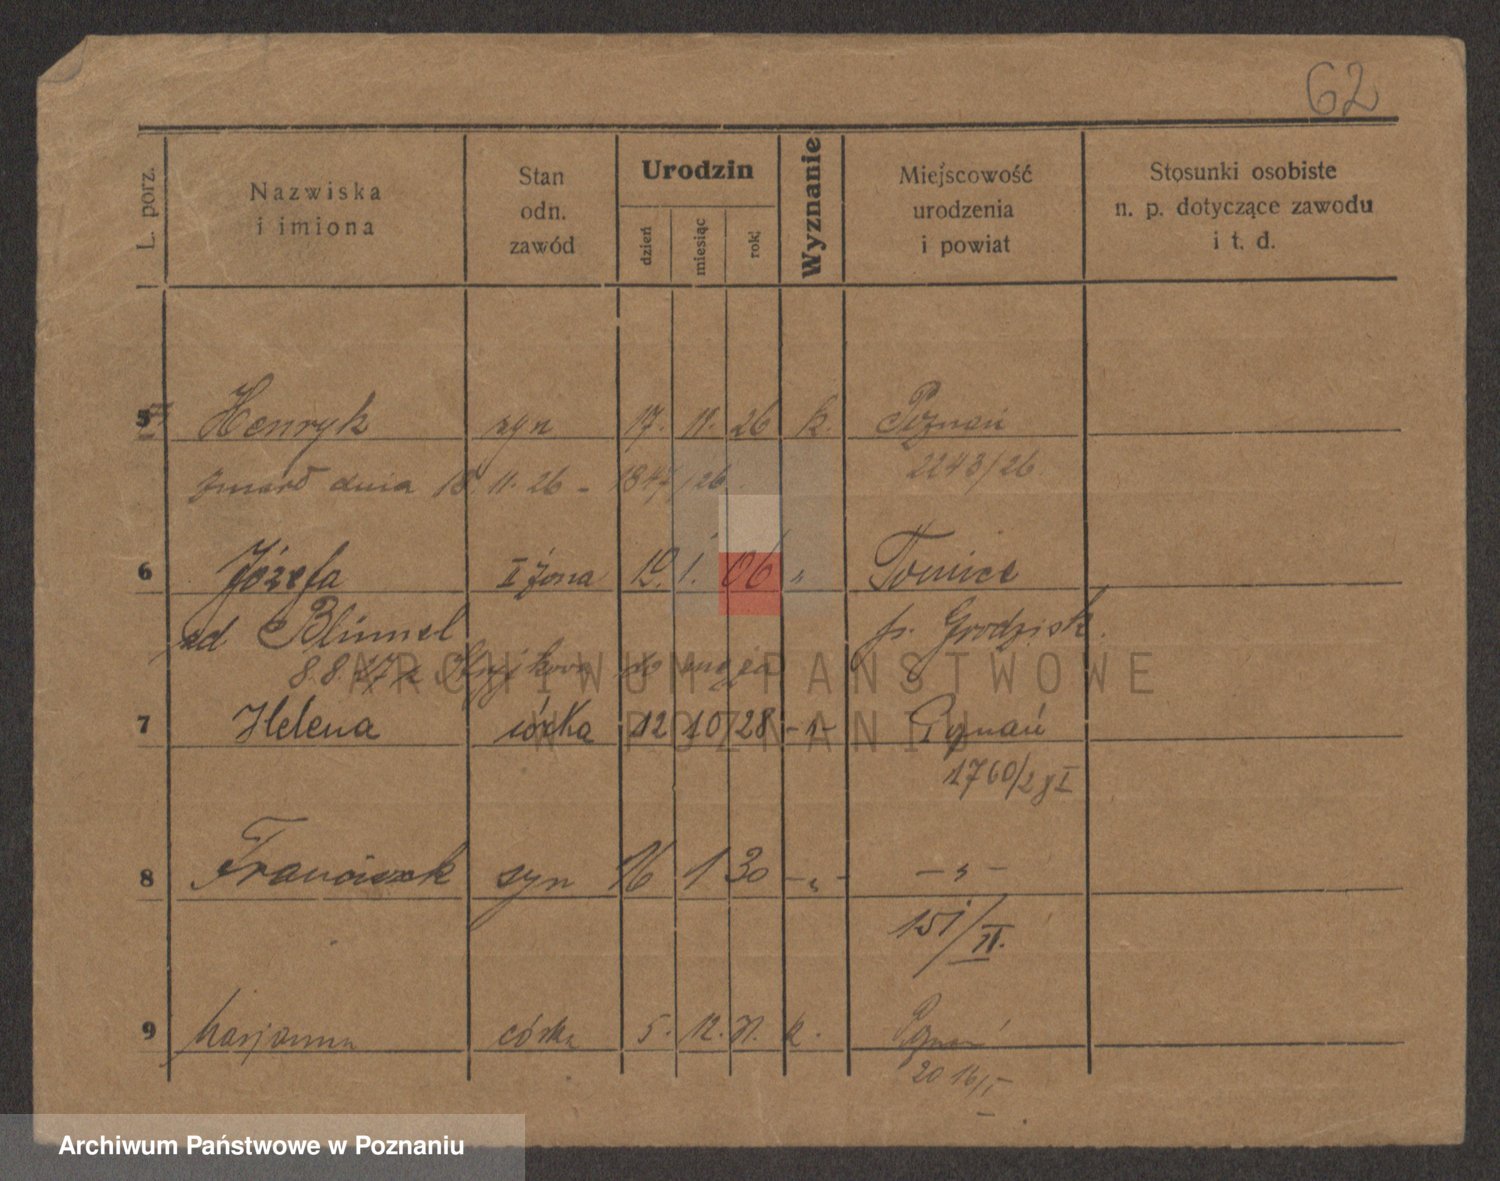 62
L. porz.
Nazwiska
i imiona
Stan
odn.
zawód
Urodzin
dzień
miesiąc
rok
Wyznanie
Miejscowość
urodzenia
i powiat
Stosunki osobiste
n. p. dotyczące zawodu
i t. d.
5 Henryk syn 17. 11. 26 k. Poznań
zmarł dnia 18 11. 26 - 1847/26 2243/26
6 Józefa I żona 19. 1. 06 " Tomice
zd Blümel p. Grodzisk.
8.8.27 z
7 Helena córka 12 10 28 -"- Poznań
1760/28 I
8 Franciszek syn 16 1 30 -"- -"-
151/II.
9 Marjanna córka 5. 12. 31. k. Poznań
2016/I
ARCHIWUM PAŃSTWOWE
W POZNANIU
Archiwum Państwowe w Poznaniu